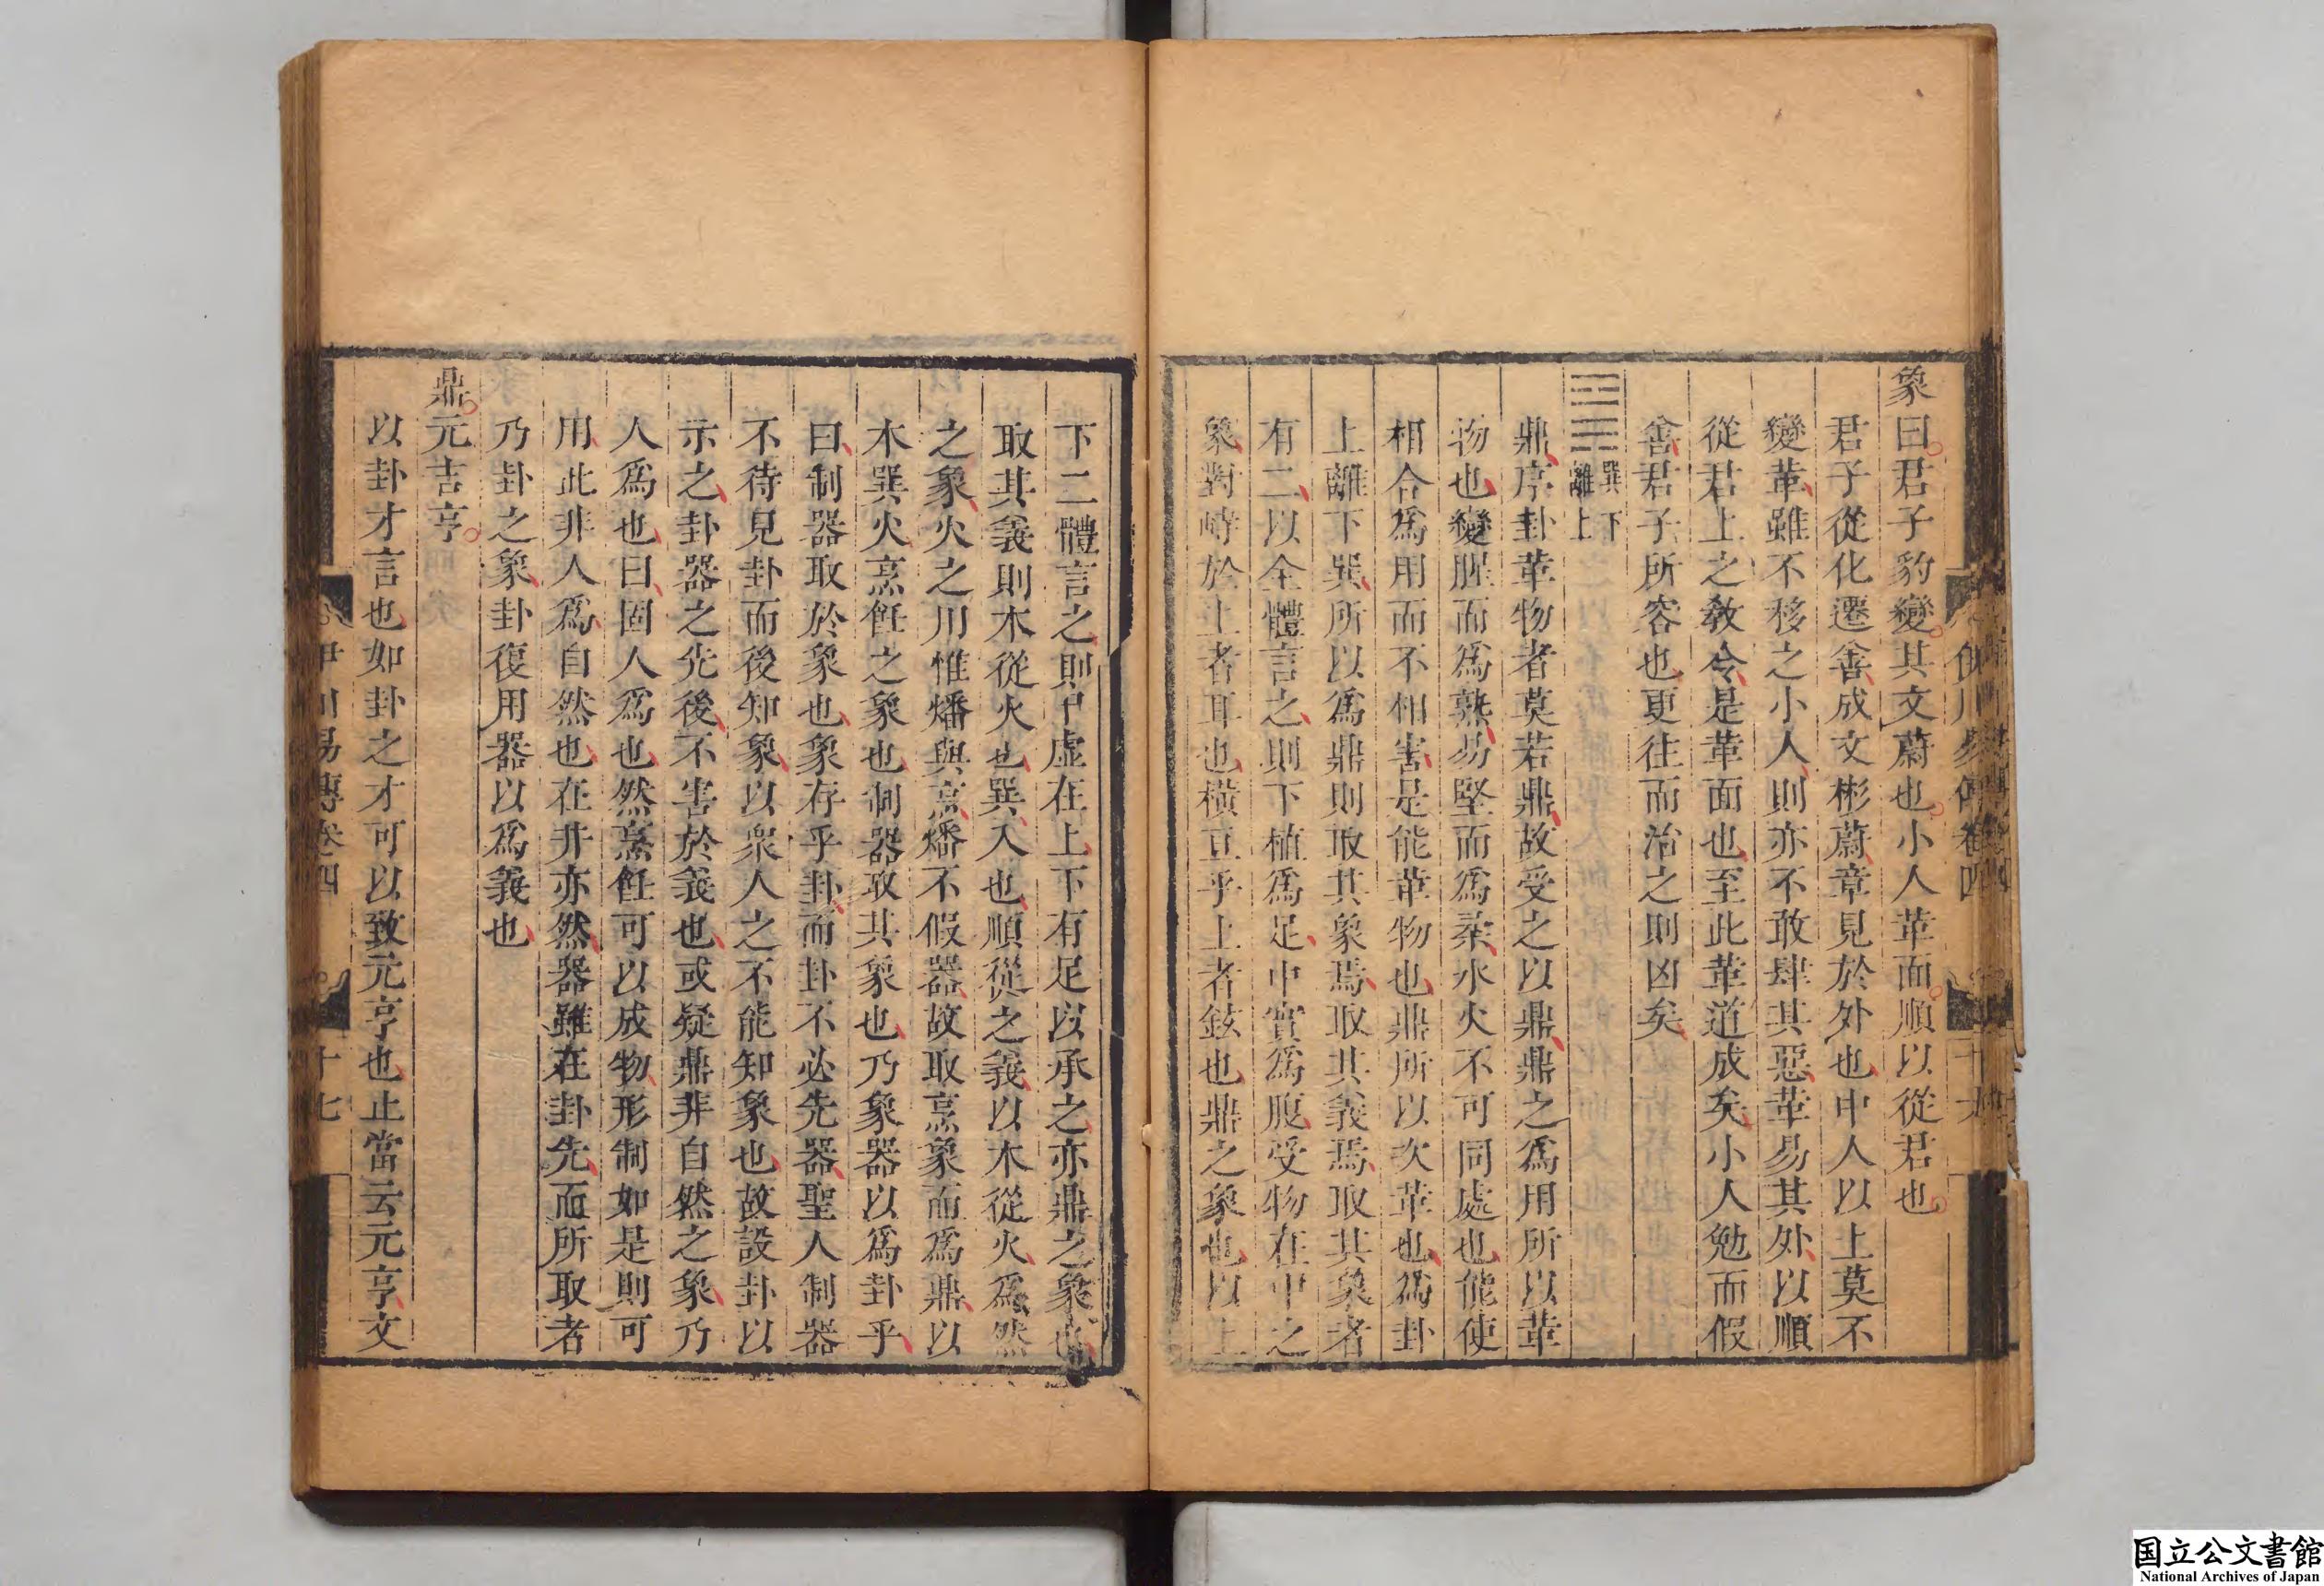 象曰君子豹變其文蔚也小人革面順以從君也
君子從化遷善成文彬蔚章見於外也中人以上莫不
變革雖不移之小人則亦不敢肆其惡革易其外以順
從君上之教令是革面也至此革道成矣小人勉而假
善君子所容也更往而治之則凶矣
䷱巽下
離上
鼎序卦革物者莫若鼎故受之以鼎鼎之爲用所以革
物也變腥而爲熟易堅而爲柔水火不可同處也能使
相合爲用而不相害是能革物也鼎所以次革也爲卦
上離下巽所以爲鼎則取其象焉取其義焉取其象者
有二以全體言之則下植爲足中實爲腹受物在中之
象對峙於上者耳也橫亘乎上者鉉也鼎之象也以上
伊川易傳卷四
十六
下二體言之則中虛在上下有足以承之亦鼎之象也
取其義則木從火也巽入也順從之義以木從火爲然
之象火之用惟燔與烹燔不假器故取烹象而爲鼎以
木巽火烹飪之象也制器取其象也乃象器以爲卦乎
曰制器取於象也象存乎卦而卦不必先器聖人制器
不待見卦而後知象以衆人之不能知象也故設卦以
示之卦器之先後不害於義也或疑鼎非自然之象乃
人爲也曰固人爲也然烹飪可以成物形制如是則可
用此非人爲自然也在井亦然器雖在卦先而所取者
乃卦之象卦復用器以爲義也
鼎元吉亨
以卦才言也如卦之才可以致元亨也止當云元亨文
伊川易傳卷四
十七
国立公文書館
National Archives of Japan